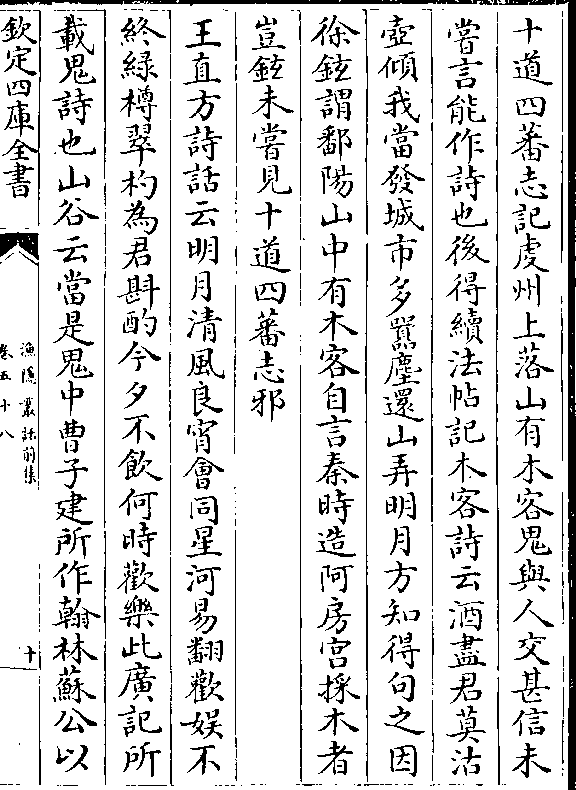 十道四蕃志記虔州上落山有木客鬼與人交甚信未
嘗言能作詩也後得續法帖記木客詩云酒盡君莫沽
壺傾我當發城市多嚣塵還山弄明月方知得句之因
徐鉉謂鄱陽山中有木客自言秦時造阿房宫採木者
豈鉉未嘗見十道四蕃志邪
王直方詩話云明月清風良宵會同星河易翻歡娱不
終緑樽翠杓為君斟酌今夕不飲何時歡樂此廣記所
載鬼詩也山谷云當是鬼中曹子建所作翰林蘇公以
欽定四庫全書
漁隱叢話前集
卷五十八
十